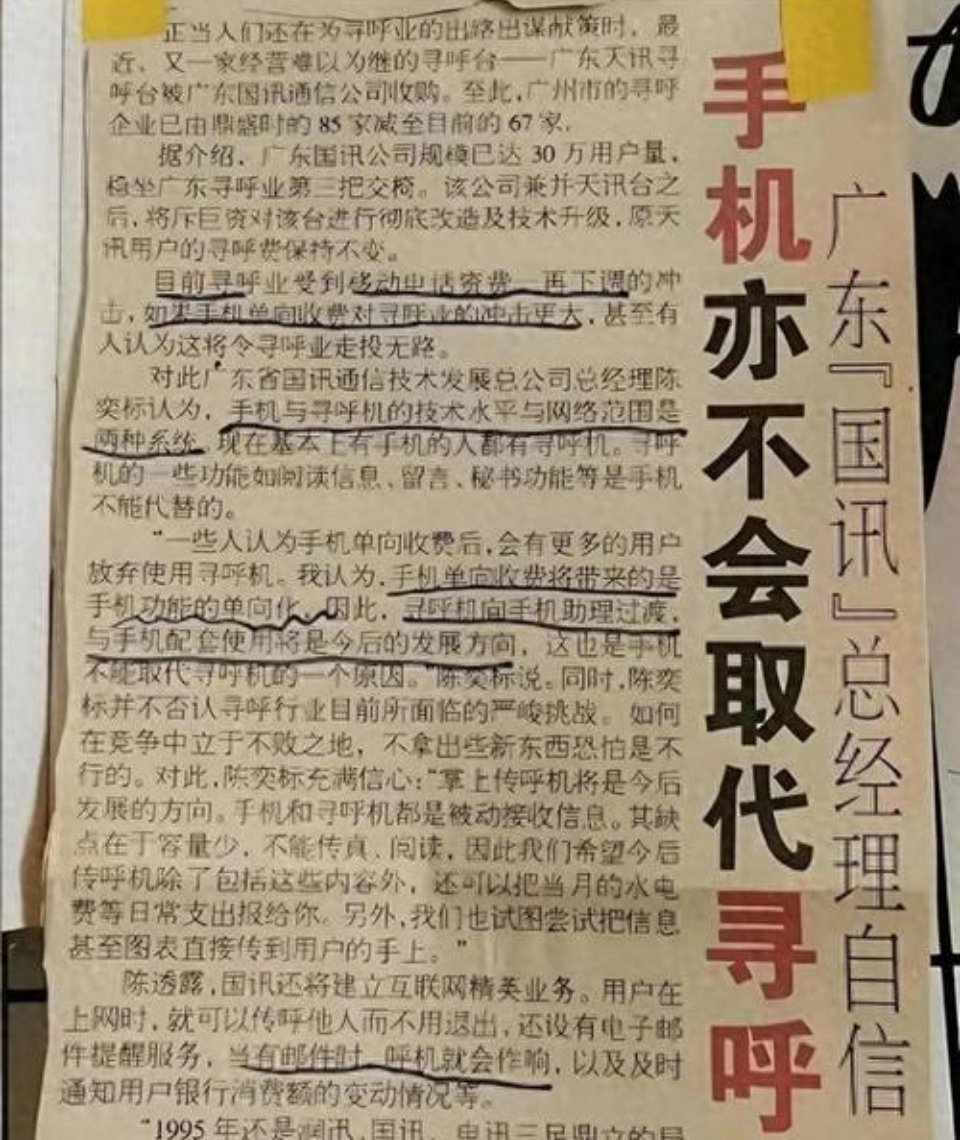 广东『国讯』总经理自信
手机亦不会取代寻呼
正当人们还在为寻呼业的出路出谋献策时，最
近，又一家经营难以为继的寻呼台——广东天讯寻
呼台被广东国讯通信公司收购。至此，广州市的寻呼
企业已由鼎盛时的 85 家减至目前的 67 家。
据介绍，广东国讯公司规模已达 30 万用户量，
稳坐广东寻呼业第三把交椅。该公司兼并天讯台之
后，将斥巨资对该台进行彻底改造及技术升级，原天
讯用户的寻呼费保持不变。
目前寻呼业受到移动电话资费一再下调的冲
击，如果手机单向收费对寻呼业的冲击更大，甚至有
人认为这将令寻呼业走投无路。
对此广东省国讯通信技术发展总公司总经理陈
奕标认为，手机与寻呼机的技术水平与网络范围是
两种系统，现在基本上有手机的人都有寻呼机。寻呼
机的一些功能如阅读信息、留言、秘书功能等是手机
不能代替的。
“一些人认为手机单向收费后，会有更多的用户
放弃使用寻呼机。我认为，手机单向收费将带来的是
手机功能的单向化，因此，寻呼机向手机助理过渡，
与手机配套使用将是今后的发展方向，这也是手机
不能取代寻呼机的一个原因。”陈奕标说。同时，陈奕
标并不否认寻呼行业目前所面临的严峻挑战。如何
在竞争中立于不败之地，不拿出些新东西恐怕是不
行的。对此，陈奕标充满信心：“掌上传呼机将是今后
发展的方向。手机和寻呼机都是被动接收信息。其缺
点在于容量少，不能传真、阅读，因此我们希望今后
传呼机除了包括这些内容外，还可以把当月的水电
费等日常支出报给你。另外，我们也试图尝试把信息
甚至图表直接传到用户的手上。”
陈透露，国讯还将建立互联网精英业务。用户在
上网时，就可以传呼他人而不用退出，还设有电子邮
件提醒服务，当有邮件时，呼机就会作响，以及及时
通知用户银行消费额的变动情况等。
“1995 年还是润讯、国讯、电讯三足鼎立的局